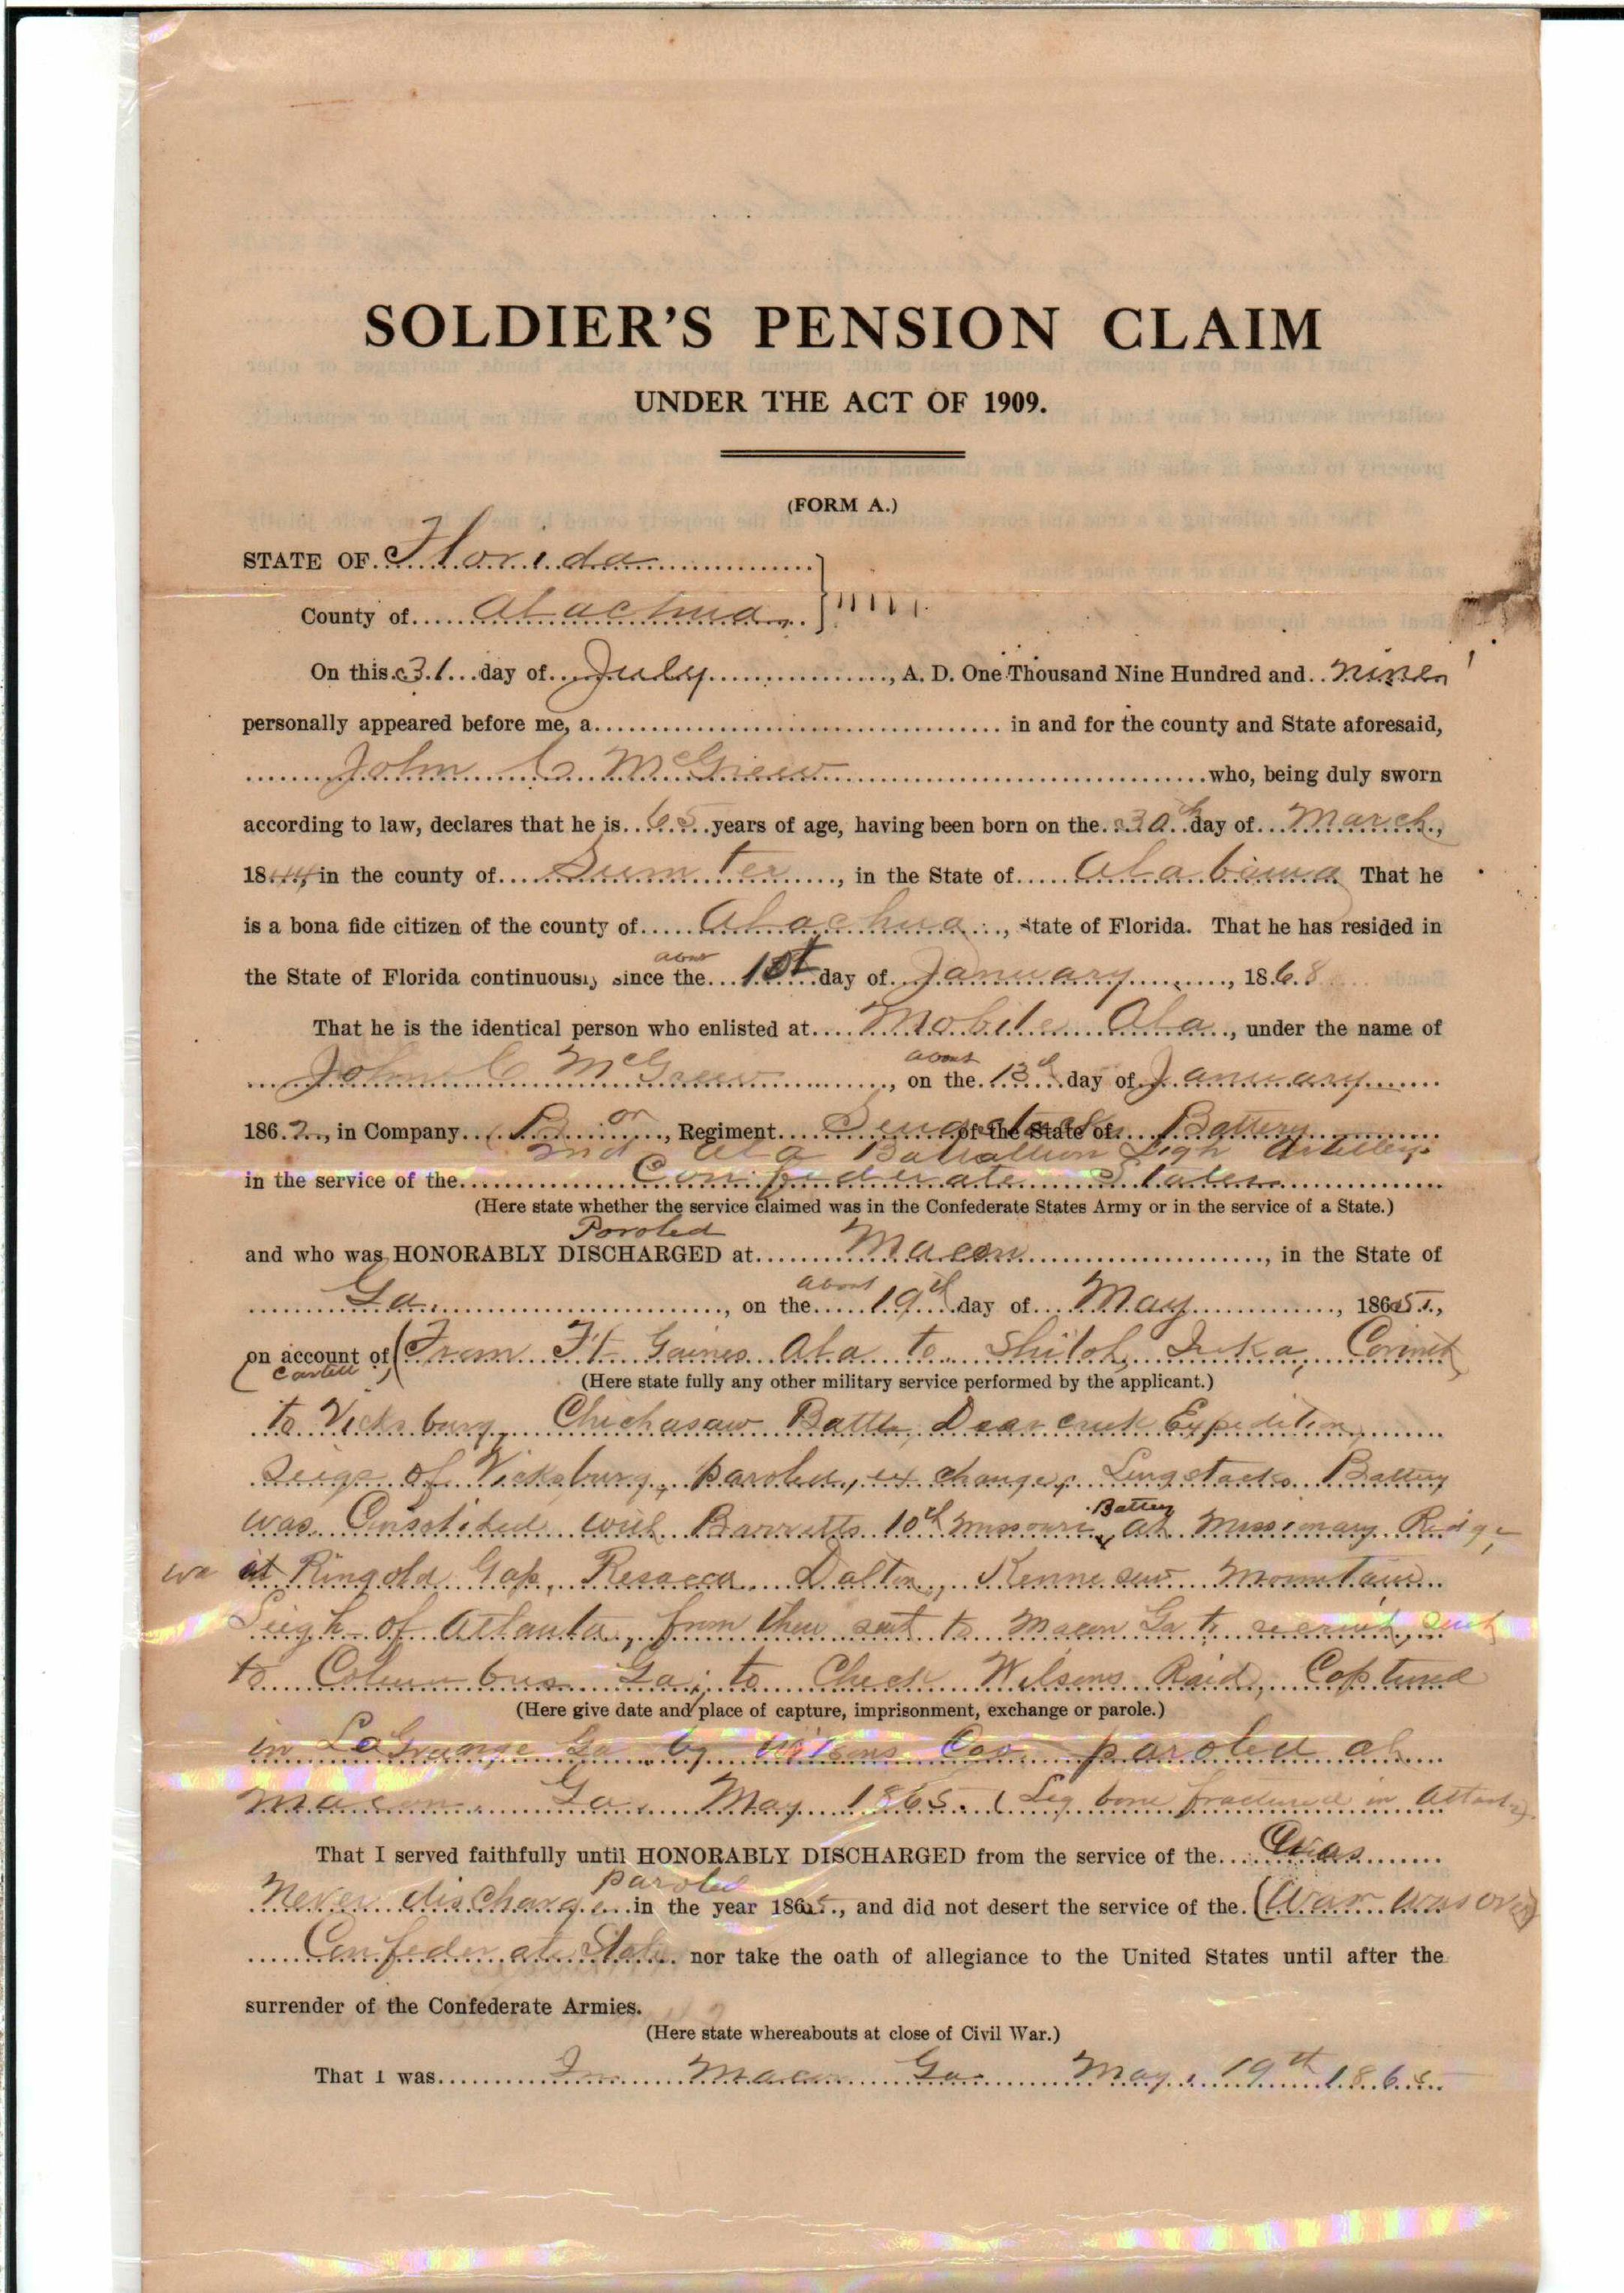 SOLDIER'S PENSION CLAIM
UNDER THE ACT OF 1909.
(FORM A.)
STATE OF Florida
County of Alachua
On this 31 day of July, A. D. One Thousand Nine Hundred and nine
personally appeared before me, a in and for the county and State aforesaid,
John C McGrew who, being duly sworn
according to law, declares that he is 65 years of age, having been born on the 30th day of March,
1844, in the county of Sumter, in the State of Alabama That he
is a bona fide citizen of the county of Alachua, State of Florida. That he has resided in
about
the State of Florida continuously since the 1st day of January, 1868
That he is the identical person who enlisted at Mobile Ala, under the name of
about
John C McGrew, on the 13th day of January
1862, in Company B or, Regiment of the State of Battery
2nd Ala Battallion Ligh Artillery
in the service of the Confederate States
(Here state whether the service claimed was in the Confederate States Army or in the service of a State.)
Poroled
and who was HONORABLY DISCHARGED at Macon, in the State of
about
Ga., on the 19th day of May, 1865,
on account of (From Ft Gaines Ala to Shiloh, Iuka, Corinth
(Here state fully any other military service performed by the applicant.)
to Vicksburg, Chichasaw Battle, Dear creek Expedition,
Seige of Vicksburg, paroled, exchange, Lengstacks Battery
Battery
was Consolided with Barretts 10th Missouri at Missionary Ridge,
at Ringold Gap, Resacca Dalton, Kennesaw Mountain
Seigh of Atlanta, from then sent to Macon Ga to recruit, sent
to Columbus Ga, to Check Wilsons Raid, Captured
(Here give date and place of capture, imprisonment, exchange or parole.)
in LaGrange Ga by Wilsons Cav. paroled at
Macon Ga, May 1865. (Leg bone fractured in Atlanta).
That I served faithfully until HONORABLY DISCHARGED from the service of the Was
paroled
never discharge in the year 1865, and did not desert the service of the (War was over)
Confederate State nor take the oath of allegiance to the United States until after the
surrender of the Confederate Armies.
(Here state whereabouts at close of Civil War.)
That I was In Macon Ga May 19th 1865